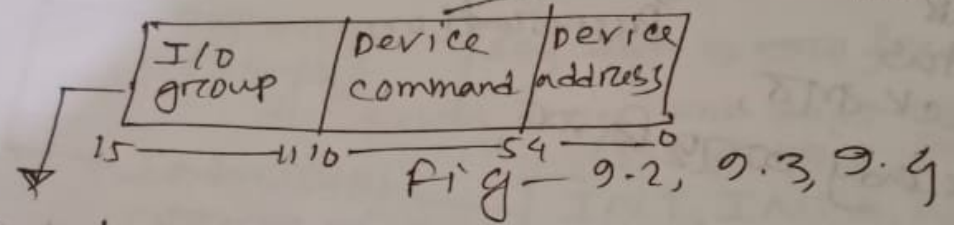 I/O group
Device command
Device address
15 11 10 5 4 0
Fig- 9.2, 9.3, 9.4